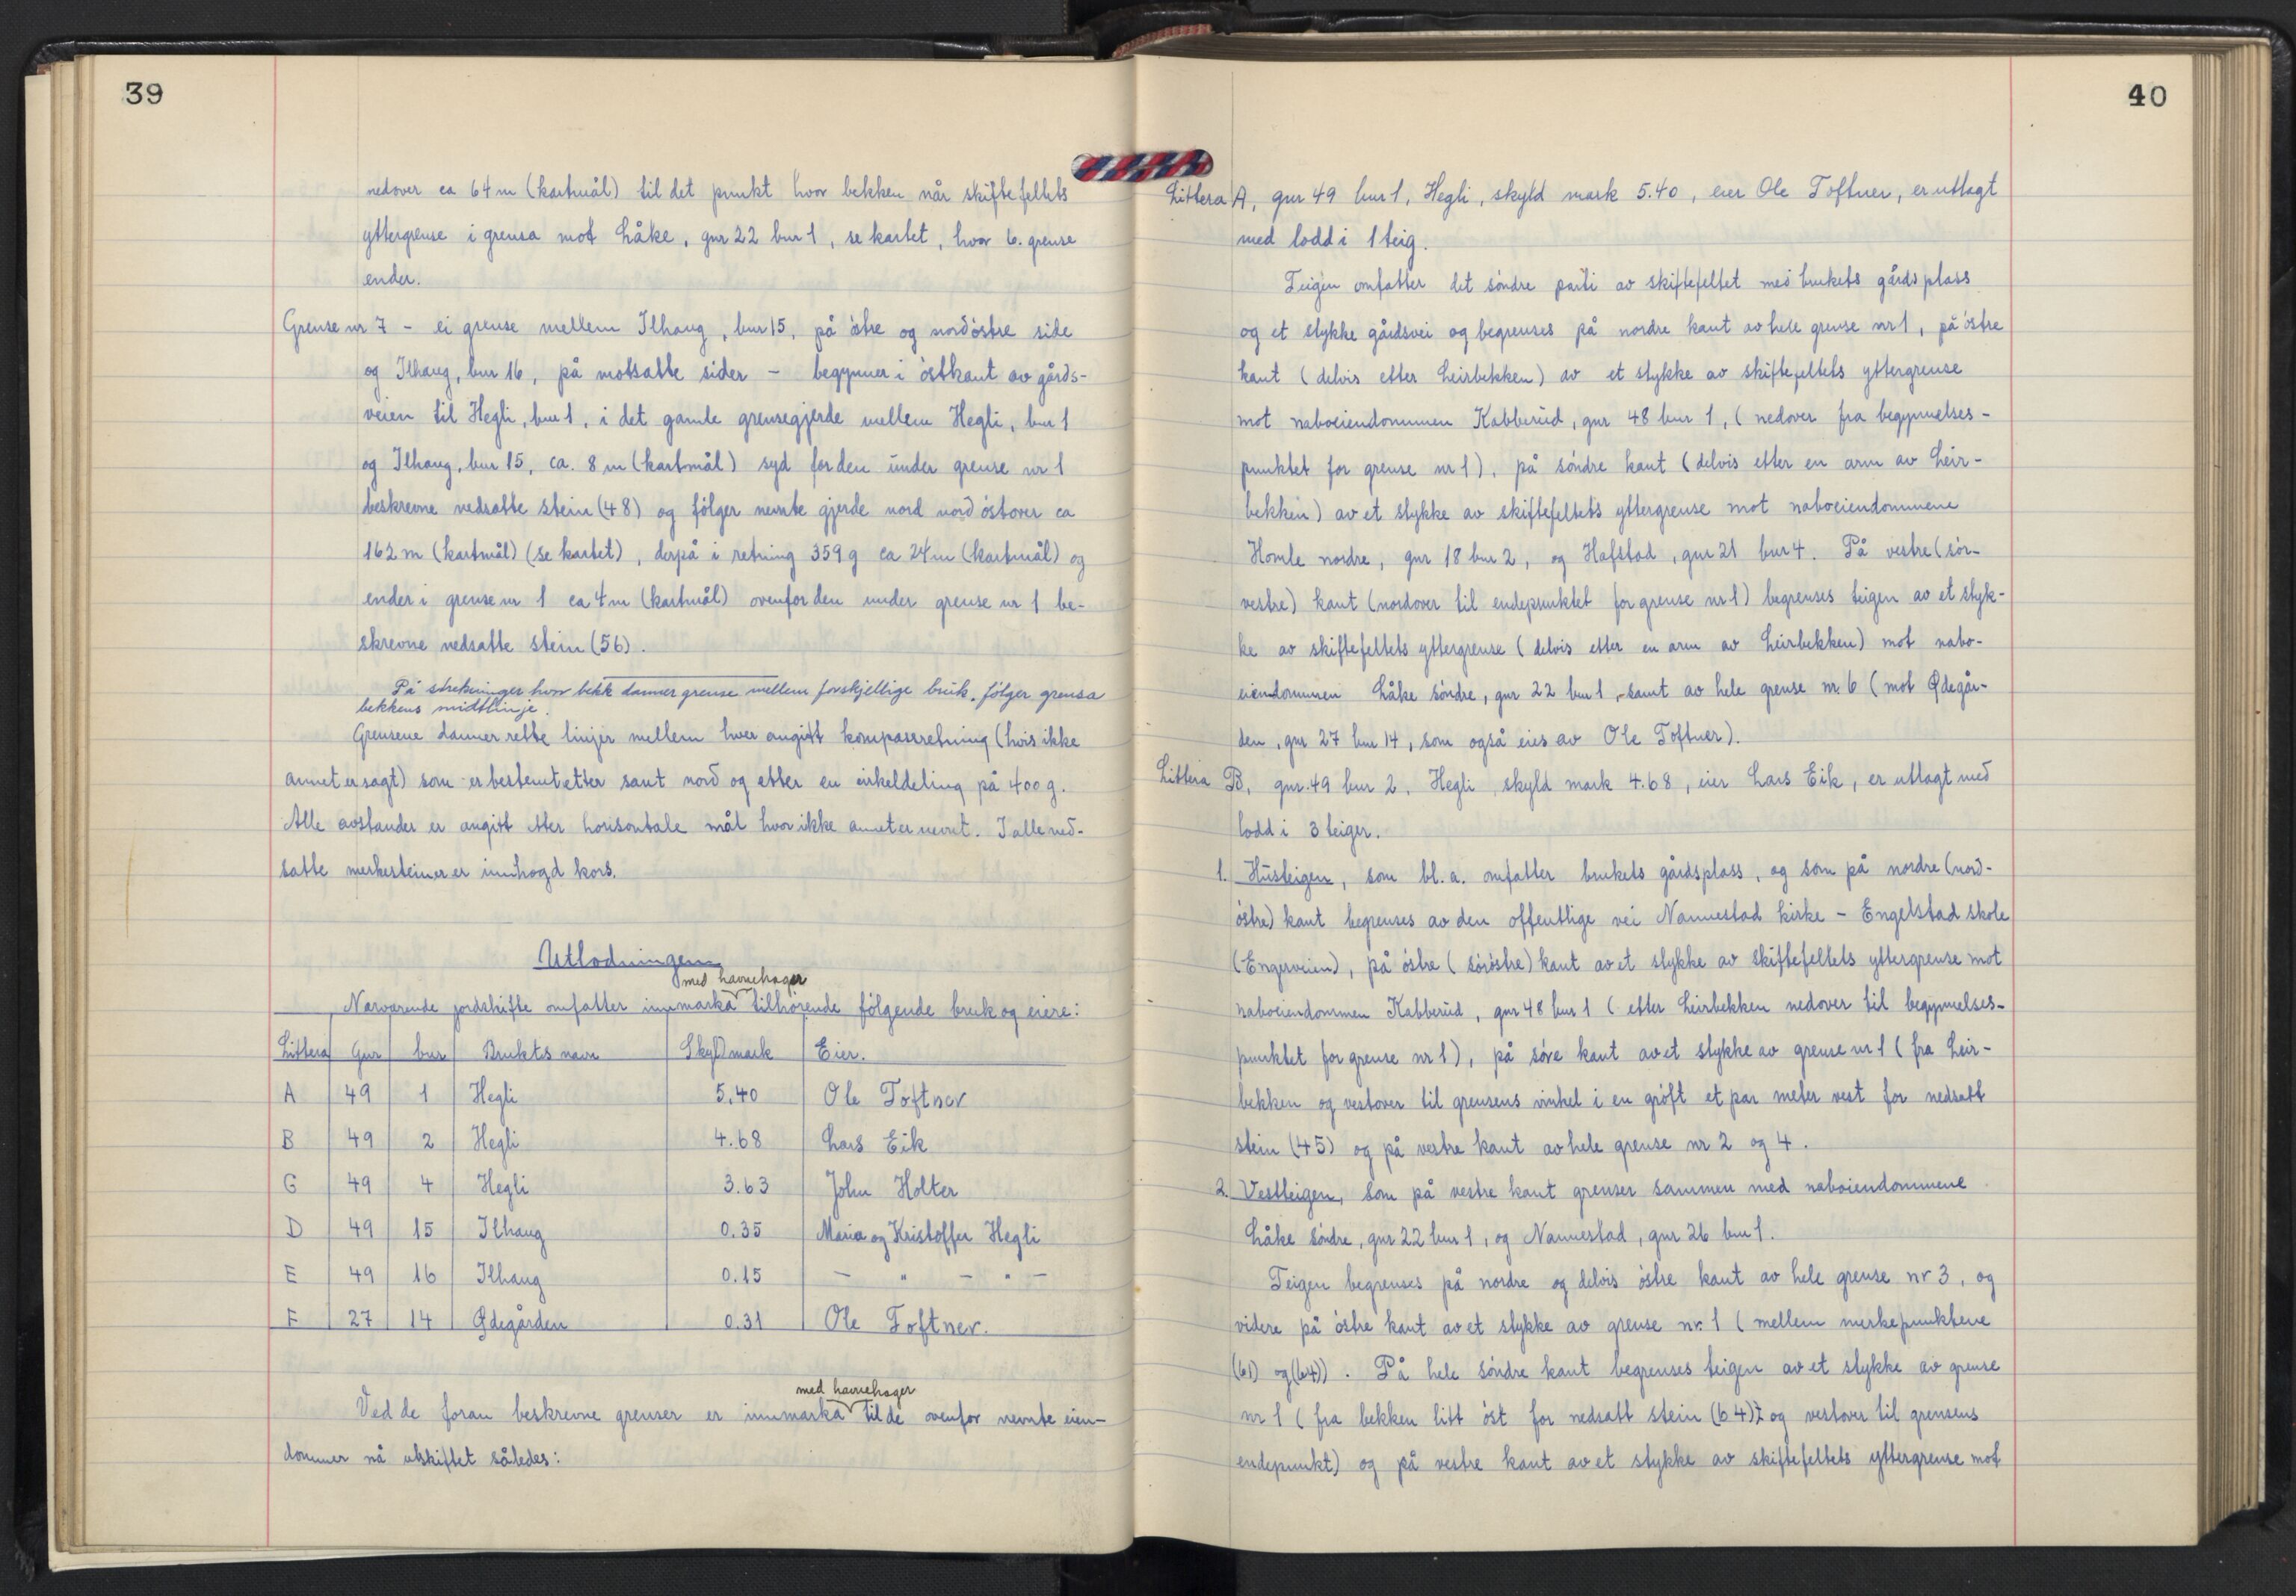 39
nedover ca 64 m (kartmål) til det punkt hvor bekken når skiftefeltets
yttergrense i grensa mot Låke, gnr 22 bnr 1, se kartet, hvor 6. grense
ender.
Grense nr 7 – ei grense mellem Ilhaug, bnr 15, på östre og nordöstre side
og Ilhaug, bnr 16, på motsatte sider – begynner i östkant av gårds-
veien til Hegli, bnr 1, i det gamle grensegjerde mellem Hegli, bnr 1
og Ilhaug, bnr 15, ca. 8 m (kartmål) syd for den under grense nr 1
beskrevne nedsatte stein (48) og fölger nevnte gjerde nord nordöstover ca
162 m (kartmål) (se kartet), derpå i retning 359 g ca 24 m (kartmål) og
ender i grense nr 1 ca 4 m (kartmål) ovenfor den under grense nr 1 be-
skrevne nedsatte stein (56).
På strekninger hvor bekk danner grense mellem forskjellige bruk, fölger grensa
bekkens midtlinje.
Grensene danner rette linjer mellem hver angitt kompassretning (hvis ikke
annet er sagt) som er bestemt etter sant nord og etter en sirkeldeling på 400 g.
Alle avstander er angitt etter horisontale mål hvor ikke annet er nevnt. I alle ned-
satte merkesteiner er innhogd kors.
Utlodningen
med havnehager
Nærværende jordskifte omfatter innmarka tilhörende fölgende bruk og eiere:
Littera Gnr bnr Bruktes navn Skyldmark Eier.
A 49 1 Hegli 5.40 Ole Toftner
B 49 2 Hegli 4.68 Lars Eik
C 49 4 Hegli 3.63 John Holter
D 49 15 Ilhaug 0.35 Maria og Kristoffer Hegli
E 49 16 Ilhaug 0.15 — " — " —
F 27 14 Ødegården 0.31 Ole Toftner.
med havnehager
Ved de foran beskrevne grenser er innmarka til de ovenfor nevnte eien-
dommer nå utskiftet således:
40
Littera A, gnr 49 bnr 1, Hegli, skyld mark 5.40, eier Ole Toftner, er utlagt
med lodd i 1 teig.
Teigen omfatter det söndre parti av skiftefeltet med brukets gårdsplass
og et stykke gårdsvei og begrenses på nordre kant av hele grense nr 1, på östre
kant (delvis etter Leirbekken) av et stykke av skiftefeltets yttergrense
mot naboeiendommen Kabberud, gnr 48 bnr 1, (nedover fra begynnelses-
punktet for grense nr 1), på söndre kant (delvis etter en arm av Leir-
bekken) av et stykke av skiftefeltets yttergrense mot naboeiendommene
Homle nordre, gnr 18 bnr 2, og Hafstad, gnr 21 bnr 4. På vestre (sör-
vestre) kant (nordover til endepunktet for grense nr 1) begrenses teigen av et styk-
ke av skiftefeltets yttergrense (delvis etter en arm av Leirbekken) mot nabo-
eiendommen Låke söndre, gnr 22 bnr 1, samt av hele grense nr. 6 (mot Ødegår-
den, gnr 27 bnr 14, som også eies av Ole Toftner).
Littera B, gnr. 49 bnr 2, Hegli, skyld mark 4.68, eier Lars Eik, er utlagt med
lodd i 3 teiger.
1. Husteigen, som bl.a. omfatter brukets gårdsplass, og som på nordre (nord-
östre) kant begrenses av den offentlige vei Nannestad kirke – Engelstad skole
(Engerveien), på östre (söröstre) kant av et stykke av skiftefeltets yttergrense mot
naboeiendommen Kabberud, gnr 48 bnr 1 (etter Leirbekken nedover til begynnelses-
punktet for grense nr 1), på söre kant av et stykke av grense nr 1 (fra Leir-
bekken og vestover til grensens vinkel i en gröft et par meter vest for nedsatt
stein (45) og på vestre kant av hele grense nr 2 og 4.
2. Vestteigen, som på vestre kant grenser sammen med naboeiendommene
Låke söndre, gnr 22 bnr 1, og Nannestad, gnr 26 bnr 1.
Teigen begrenses på nordre og delvis östre kant av hele grense nr 3, og
videre på östre kant av et stykke av grense nr. 1 (mellem merkepunktene
(61) og (64)). På hele söndre kant begrenses teigen av et stykke av grense
nr 1 (fra bekken litt öst for nedsatt stein (64) og vestover til grensens
endepunkt) og på vestre kant av et stykke av skiftefeltets yttergrense mot